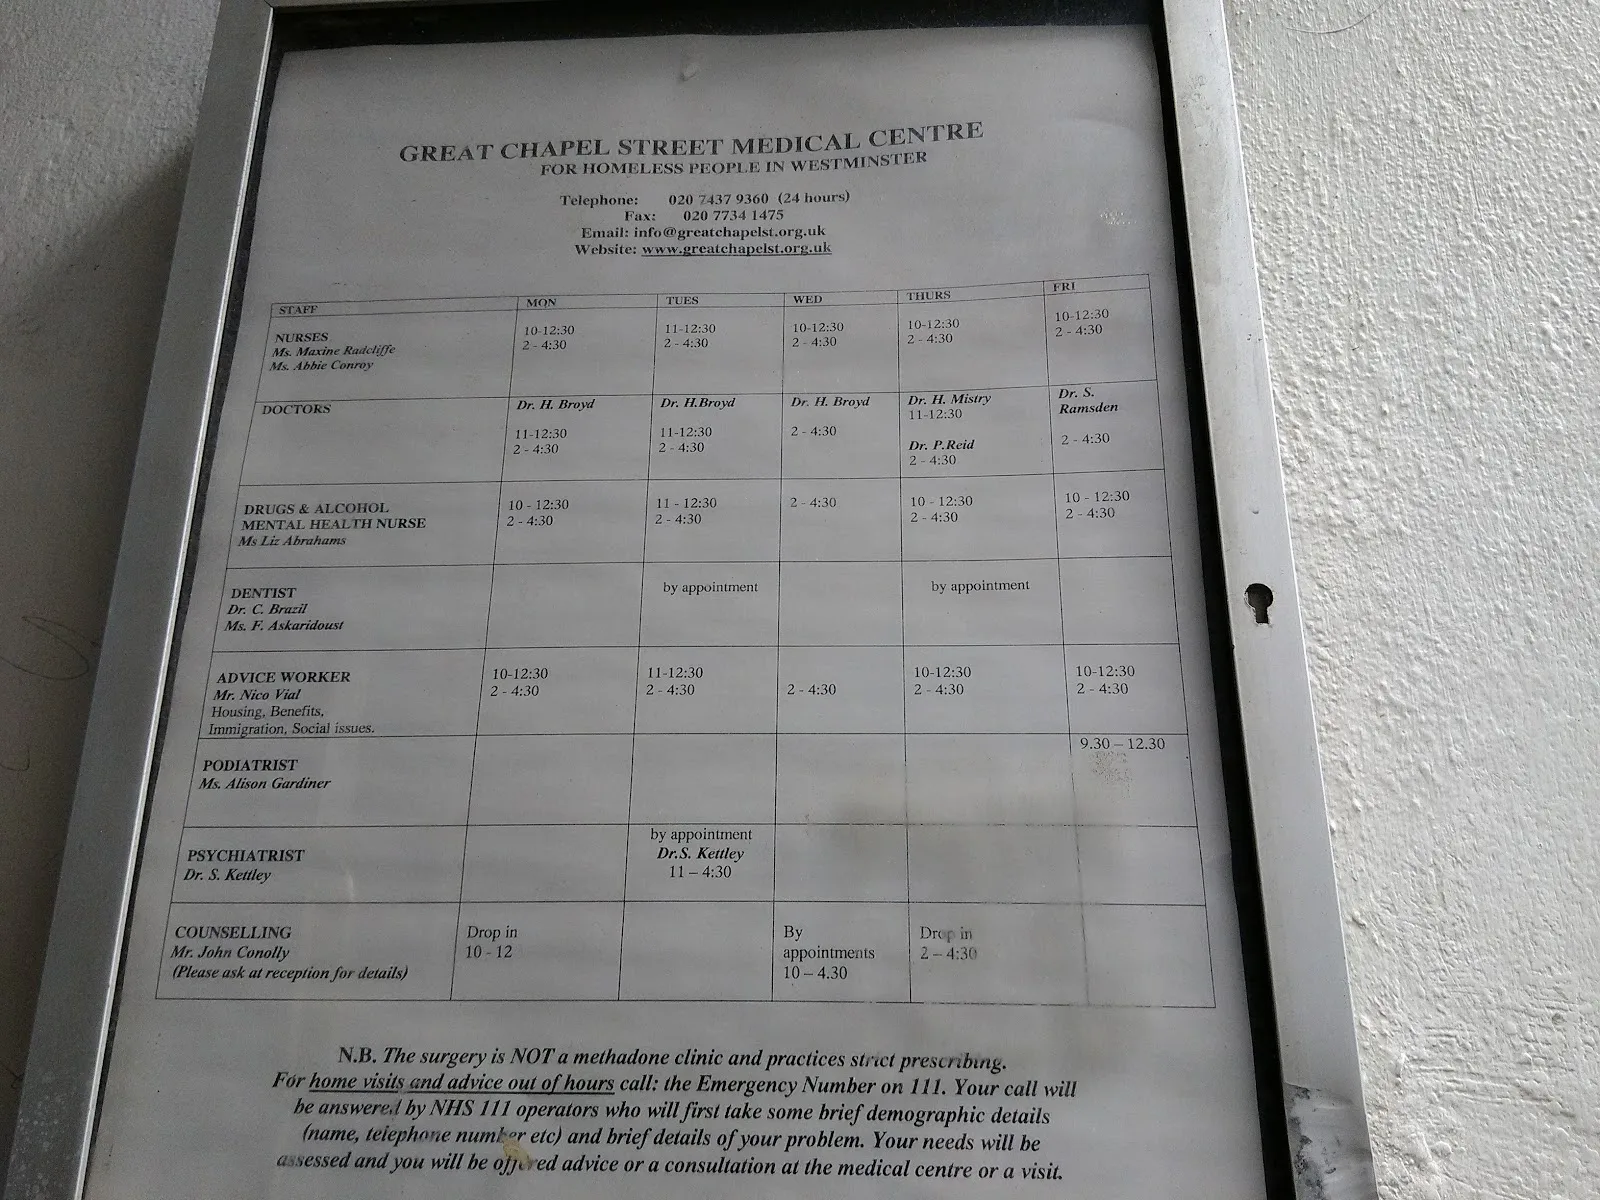 GREAT CHAPEL STREET MEDICAL CENTRE
FOR HOMELESS PEOPLE IN WESTMINSTER
Telephone: 020 7437 9360 (24 hours)
Fax: 020 7734 1475
Email: info@greatchapelst.org.uk
Website: www.greatchapelst.org.uk
STAFF MON TUES WED THURS FRI
NURSES 10-12:30 11-12:30 10-12:30 10-12:30 10-12:30
Ms. Maxine Radcliffe 2 - 4:30 2 - 4:30 2 - 4:30 2 - 4:30 2 - 4:30
Ms. Abbie Conroy
DOCTORS Dr. H. Broyd Dr. H.Broyd Dr. H. Broyd Dr. H. Mistry Dr. S.
11-12:30 Ramsden
11-12:30 11-12:30 2 - 4:30 Dr. P.Reid 2 - 4:30
2 - 4:30 2 - 4:30 2 - 4:30
DRUGS & ALCOHOL 10 - 12:30 11 - 12:30 2 - 4:30 10 - 12:30 10 - 12:30
MENTAL HEALTH NURSE 2 - 4:30 2 - 4:30 2 - 4:30 2 - 4:30
Ms Liz Abrahams
DENTIST by appointment by appointment
Dr. C. Brazil
Ms. F. Askaridoust
ADVICE WORKER 10-12:30 11-12:30 10-12:30 10-12:30
Mr. Nico Vial 2 - 4:30 2 - 4:30 2 - 4:30 2 - 4:30 2 - 4:30
Housing, Benefits,
Immigration, Social issues.
PODIATRIST 9.30 – 12.30
Ms. Alison Gardiner
by appointment
PSYCHIATRIST Dr.S. Kettley
Dr. S. Kettley 11 – 4:30
COUNSELLING Drop in By Drop in
Mr. John Conolly 10 - 12 appointments 2 – 4:30
(Please ask at reception for details) 10 – 4.30
N.B. The surgery is NOT a methadone clinic and practices strict prescribing.
For home visits and advice out of hours call: the Emergency Number on 111. Your call will
be answered by NHS 111 operators who will first take some brief demographic details
(name, telephone number etc) and brief details of your problem. Your needs will be
assessed and you will be offered advice or a consultation at the medical centre or a visit.